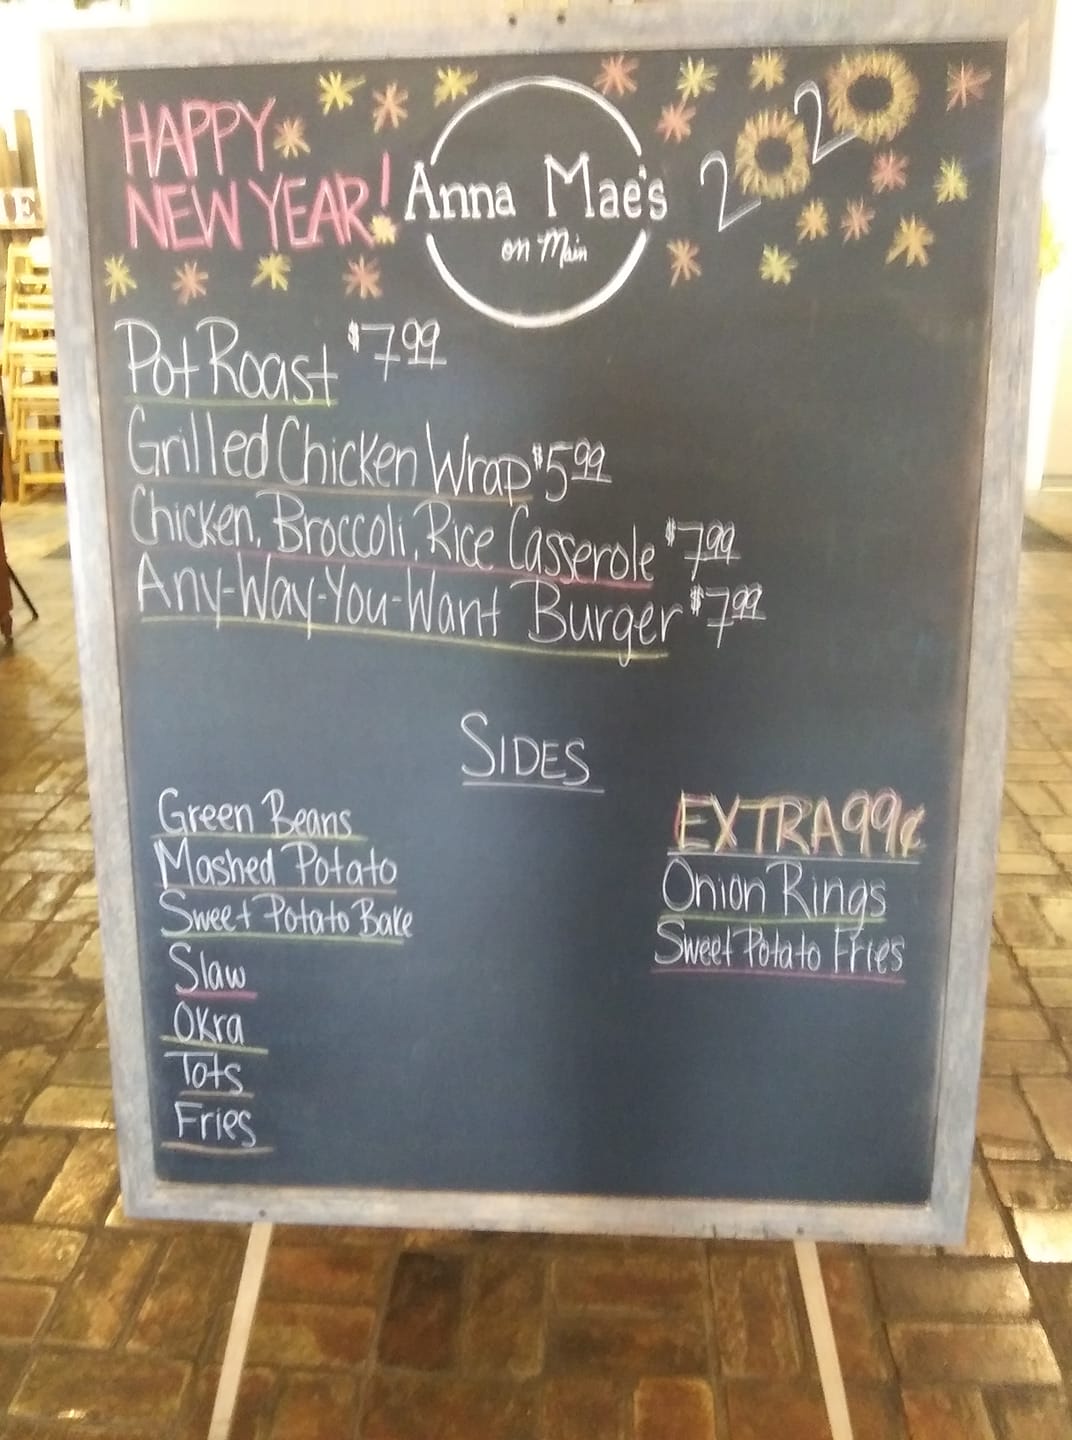 HAPPY
NEW YEAR!
Anna Mae's
on Main
2020
Pot Roast $7.99
Grilled Chicken Wrap $5.99
Chicken, Broccoli, Rice Casserole $7.99
Any-Way-You-Want Burger $7.99
SIDES
Green Beans
Mashed Potato
Sweet Potato Bake
Slaw
Okra
Tots
Fries
EXTRA 99¢
Onion Rings
Sweet Potato Fries
E